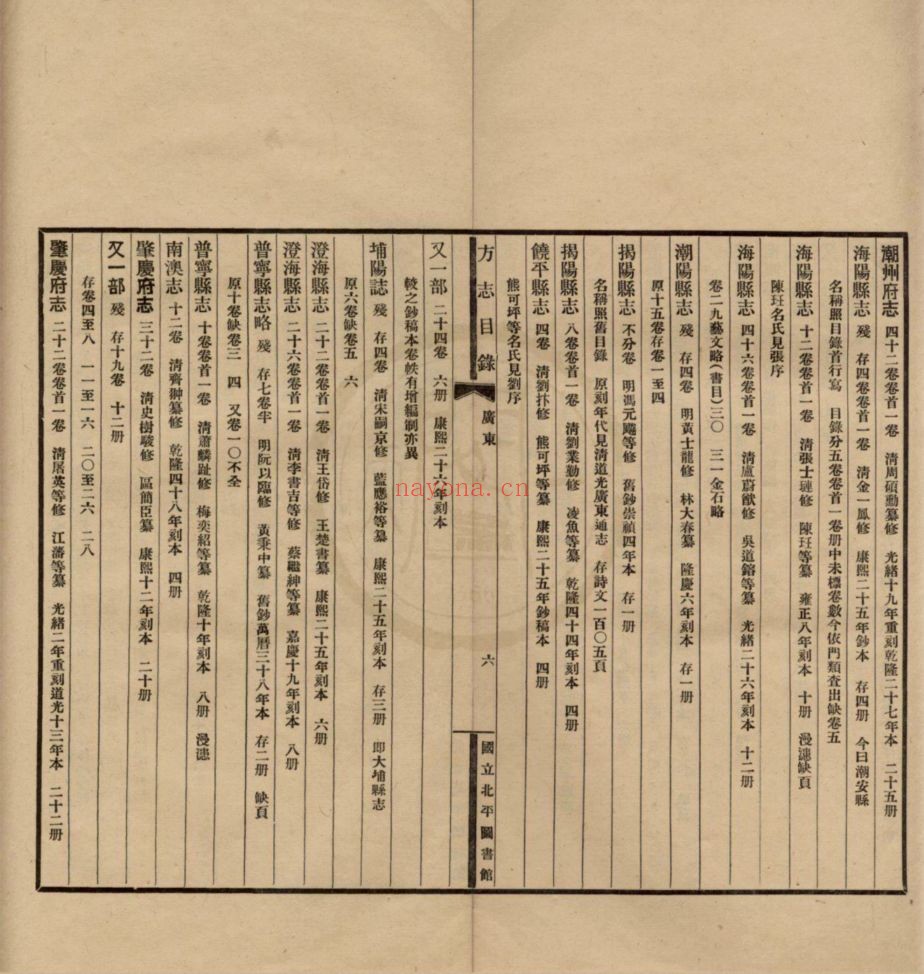 潮州府志 四十二卷卷首一卷 清周碩勳纂修 光緒十九年重刻乾隆二十七年本 二十五册
海陽縣志 殘 存四卷卷首一卷 清金一鳳修 康熙二十五年鈔本 存四册 今曰潮安縣
名稱照目錄首行寫 目錄分五卷卷首一卷册中未標卷數今依門類查出缺卷五
海陽縣志 十二卷卷首一卷 清張士璉修 陳珏等纂 雍正八年刻本 十册 漫漶缺頁
陳珏名氏見張序
海陽縣志 四十六卷卷首一卷 清盧蔚猷修 吳道鎔等纂 光緒二十六年刻本 十二册
卷二九藝文略(書目)三〇 三一金石略
潮陽縣志 殘 存四卷 明黃士龍修 林大春纂 隆慶六年刻本 存一册
原十五卷存卷一至四
揭陽縣志 不分卷 明馮元飈等修 舊鈔崇禎四年本 存一册
名稱照舊目錄 原刻年代見清道光廣東通志 存詩文一百〇五頁
揭陽縣志 八卷卷首一卷 清劉業勤修 凌魚等纂 乾隆四十四年刻本 四册
饒平縣志 四卷 清劉抃修 熊可坪等纂 康熙二十五年鈔稿本 四册
熊可坪等名氏見劉序
方志目錄 廣東 六 國立北平圖書館
又一部 二十四卷 六册 康熙二十六年刻本
較之鈔稿本卷帙有增編制亦異
埔陽誌 殘 存四卷 清宋嗣京修 藍應裕等纂 康熙二十五年刻本 存三册 即大埔縣志
原六卷缺卷五 六
澄海縣志 二十二卷 清王岱修 王楚書纂 康熙二十五年刻本 六册
澄海縣志 二十六卷卷首一卷 清李書吉等修 蔡繼紳等纂 嘉慶十九年刻本 八册
普寧縣志略 殘 存七卷半 明阮以臨修 黃秉中纂 舊鈔萬曆三十八年本 存二册 缺頁
原十卷缺卷三 四 又卷一〇不全
普寧縣志 十卷卷首一卷 清蕭麟趾修 梅奕紹等纂 乾隆十年刻本 八册 漫漶
南澳志 十二卷 清齊翀纂修 乾隆四十八年刻本 四册
肇慶府志 三十二卷 清史樹駿修 區簡臣纂 康熙十二年刻本 二十册
又一部 殘 存十九卷 十二册
存卷四至八 一一至一六 二〇至二六 二八
肇慶府志 二十二卷卷首一卷 清屠英等修 江藩等纂 光緒二年重刻道光十三年本 二十二册
nayona.cn